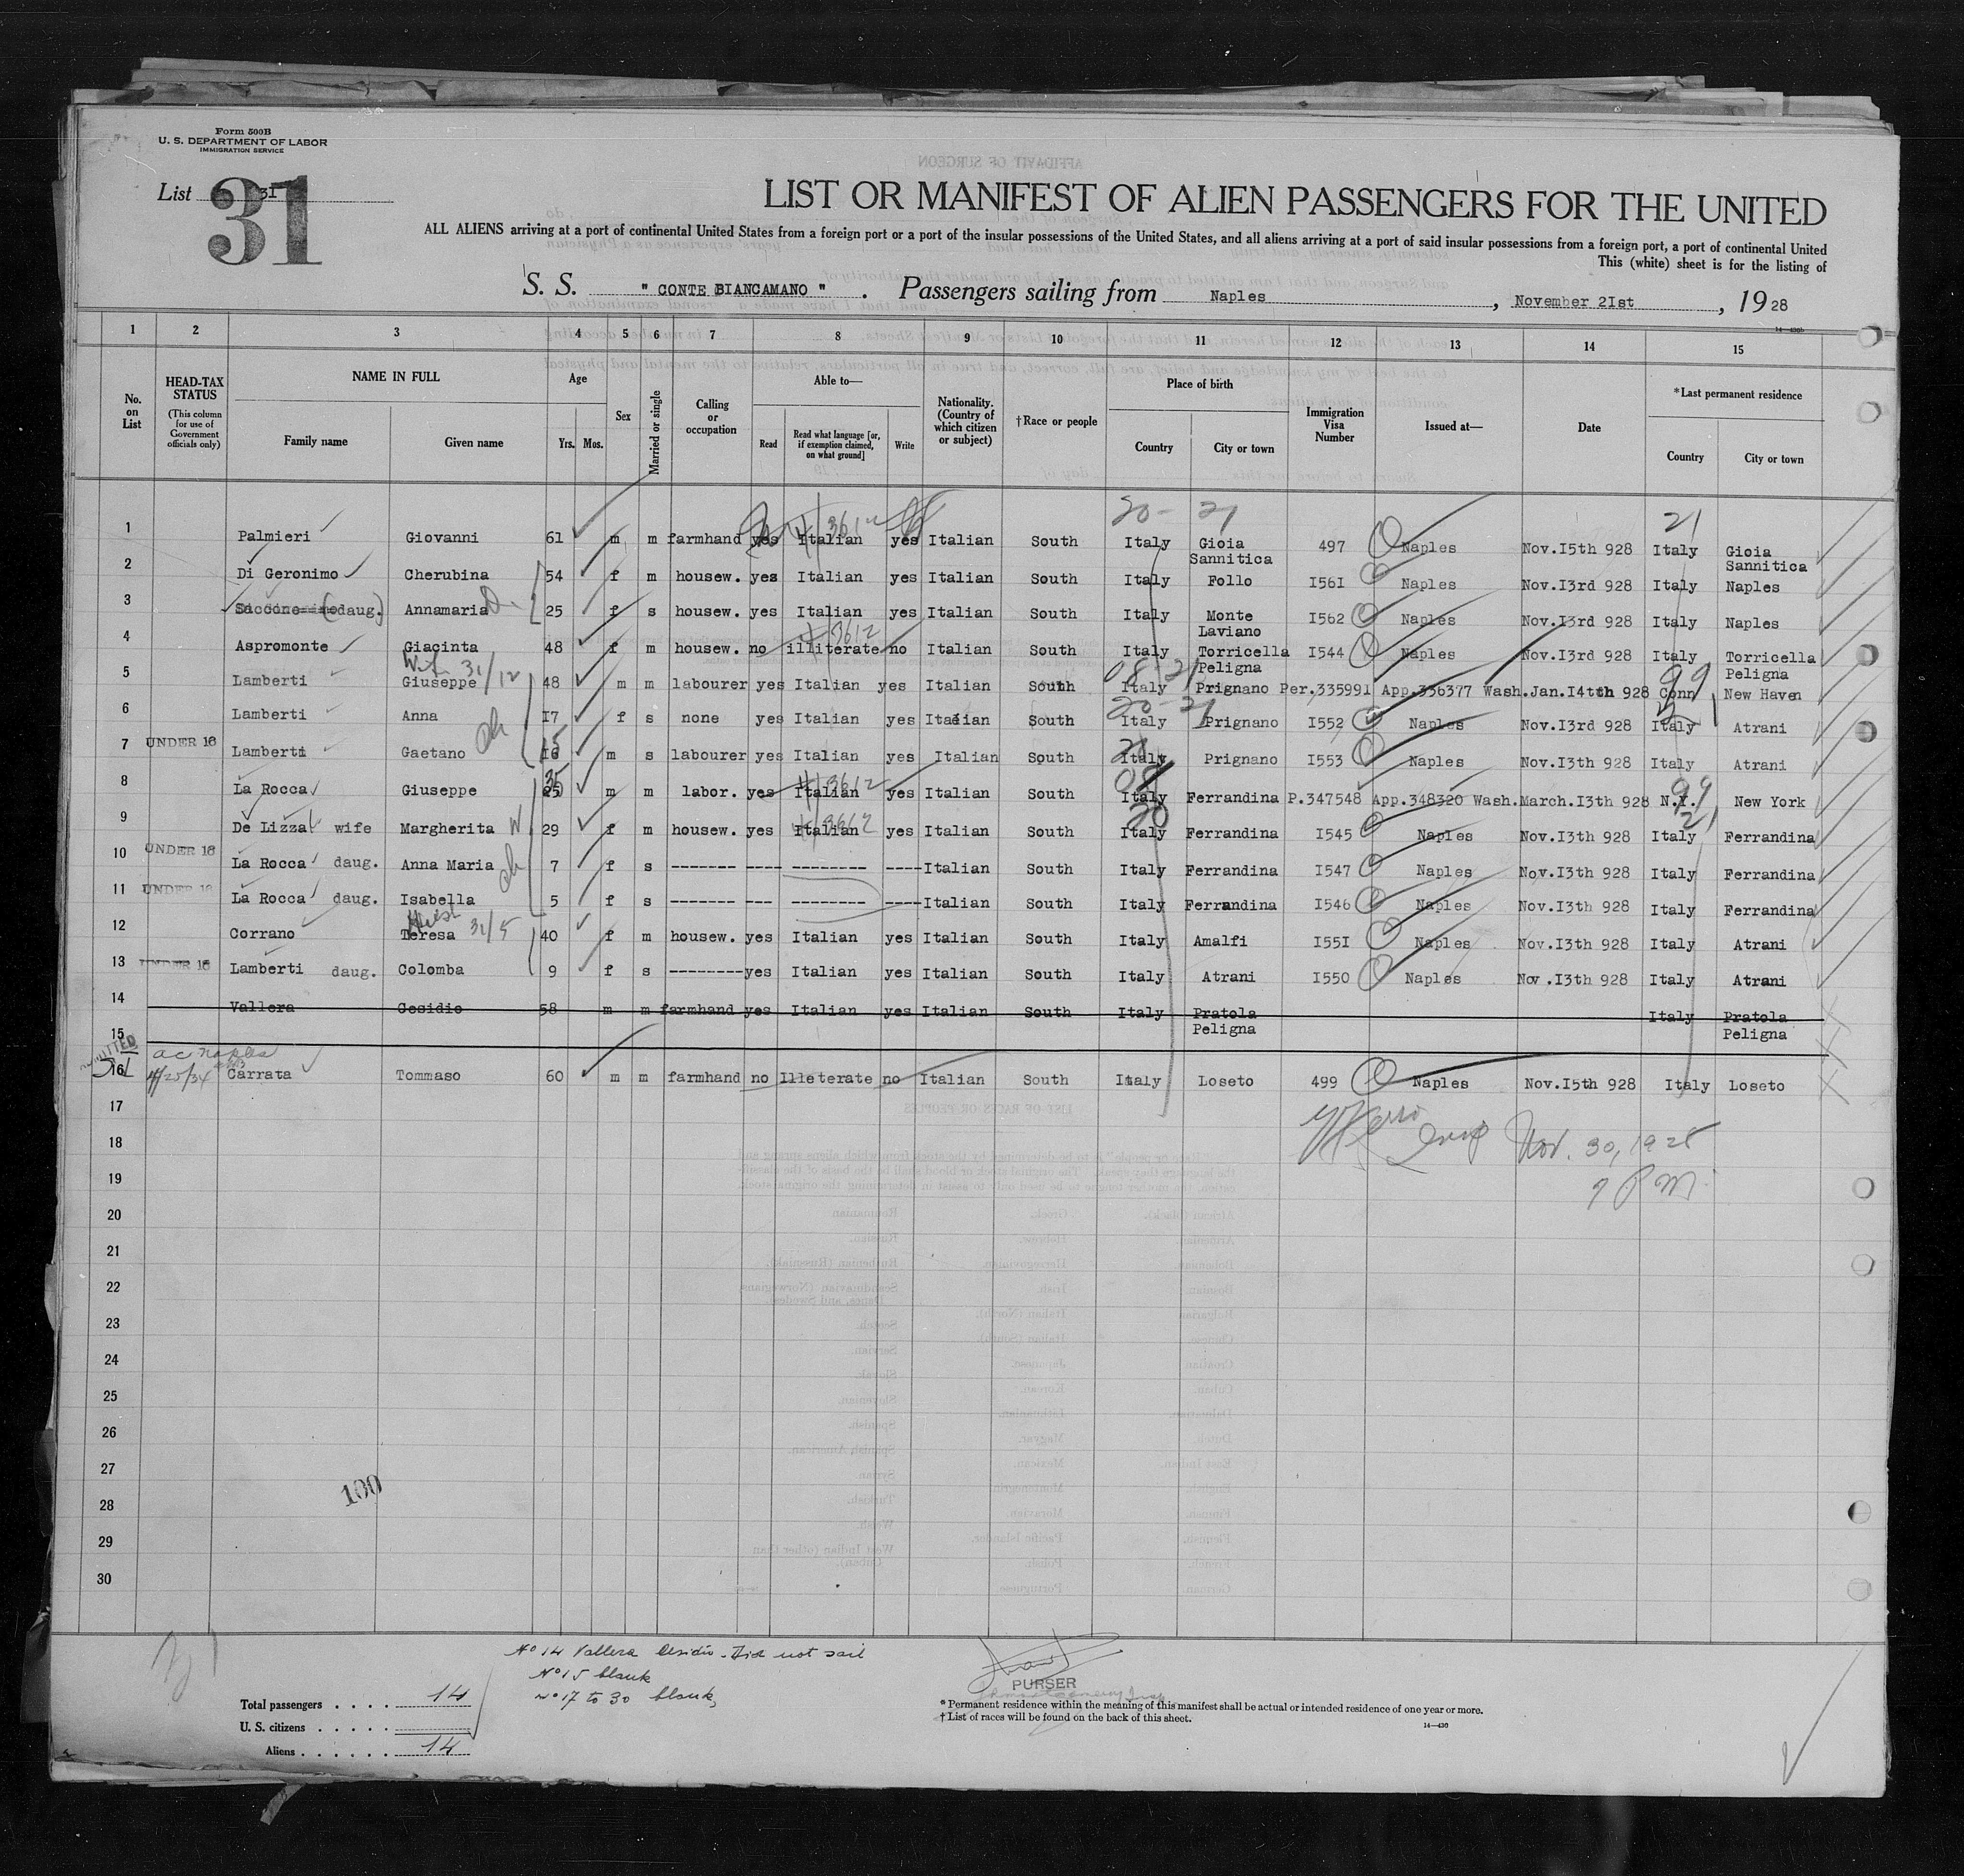 Form 500B
U. S. DEPARTMENT OF LABOR
IMMIGRATION SERVICE
List 3I
31
LIST OR MANIFEST OF ALIEN PASSENGERS FOR THE UNITED
ALL ALIENS arriving at a port of continental United States from a foreign port or a port of the insular possessions of the United States, and all aliens arriving at a port of said insular possessions from a foreign port, a port of continental United
This (white) sheet is for the listing of
S. S. " CONTE BIANCAMANO ". Passengers sailing from Naples, November 2Ist, 1928
14—430b
1 2 3 4 5 6 7 8 9 10 11 12 13 14 15
No. on List
HEAD-TAX STATUS (This column for use of Government officials only)
NAME IN FULL Family name Given name
Age Yrs. Mos.
Sex
Married or single
Calling or occupation
Able to— Read Read what language [or, if exemption claimed, on what ground] Write
Nationality. (Country of which citizen or subject)
†Race or people
Place of birth Country City or town
Immigration Visa Number
Issued at—
Date
*Last permanent residence Country City or town
20- 21 21
1 Palmieri Giovanni 61 m m farmhand yes Italian 3612 yes Italian South Italy Gioia Sannitica 497 Naples Nov.I5th 928 Italy Gioia Sannitica
2 Di Geronimo Cherubina 54 f m housew. yes Italian yes Italian South Italy Follo I56I Naples Nov.I3rd 928 Italy Naples
3 (daug.) Annamaria 25 f s housew. yes Italian yes Italian South Italy Monte Laviano I562 Naples Nov.I3rd 928 Italy Naples
4 Aspromonte Giacinta 48 f m housew. no illiterate 3612 no Italian South Italy Torricella Peligna I544 Naples Nov.I3rd 928 Italy Torricella Peligna
31/12 08-21 99
5 Lamberti Giuseppe 48 m m labourer yes Italian yes Italian South Italy Prignano Per.335991 App.336377 Wash.Jan.I4tth 928 Conn New Haven
20-21
6 Lamberti Anna I7 f s none yes Italian yes Italian South Italy Prignano I552 Naples Nov.I3rd 928 Italy Atrani
7 UNDER 16 Lamberti Gaetano I6 15 m s labourer yes Italian yes Italian South Italy Prignano I553 Naples Nov.I3th 928 Italy Atrani
8 La Rocca Giuseppe 35 m m labor. yes Italian 3612 yes Italian South Italy Ferrandina P.347548 App.348320 Wash.March.I3th 928 N.Y. New York
9 De Lizza wife Margherita W 29 f m housew. yes Italian 3612 yes Italian South Italy Ferrandina I545 Naples Nov.I3th 928 Italy Ferrandina
10 UNDER 16 La Rocca daug. Anna Maria ch 7 f s ------- ---- -------- ----Italian South Italy Ferrandina I547 Naples Nov.I3th 928 Italy Ferrandina
11 UNDER 16 La Rocca daug. Isabella 5 f s ------- --- -------- ----Italian South Italy Ferrandina I546 Naples Nov.I3th 928 Italy Ferrandina
31/5
12 Corrano Teresa 40 f m housew. yes Italian yes Italian South Italy Amalfi I55I Naples Nov.I3th 928 Italy Atrani
13 UNDER 16 Lamberti daug. Colomba 9 f s --------yes Italian yes Italian South Italy Atrani I550 Naples Nov.I3th 928 Italy Atrani
14 Vallera Cesidio 58 m m farmhand yes Italian yes Italian South Italy Pratola Peligna Italy Pratola Peligna
15
ADMITTED
16 Carrata Tommaso 60 m m farmhand no Illeterate no Italian South Italy Loseto 499 Naples Nov.I5th 928 Italy Loseto
17
18 Insp Nov. 30, 1928
19 7 PM
20
21
22
23
24
25
26
27
100
28
29
30
No 14 Vallera Cesidio. Did not sail
No 15 blank
No 17 to 30 blank
Total passengers . . . . 14
U. S. citizens . . . . .
Aliens . . . . . . 14
PURSER
* Permanent residence within the meaning of this manifest shall be actual or intended residence of one year or more.
† List of races will be found on the back of this sheet.
14—430